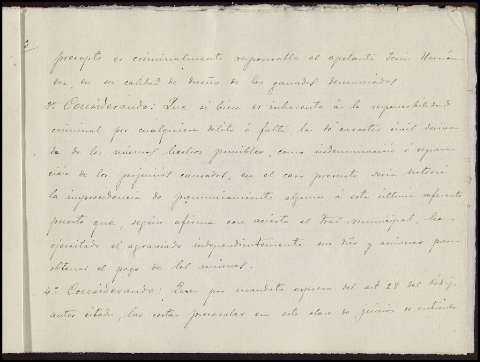 precepto es criminalmente responsable el apelante José Hernán-
dez, en su calidad de dueño de los ganados denunciados
3º. Considerando: Que si bien es inherente á la responsabilidad
criminal por cualquiera delito ó falta la de caracter civil deriva-
da de los mismos hechos punibles, como indemnización ó repara-
ción de los perjuicios causados, en el caso presente sería notoria
la improcedencia de pronunciamiento alguno á este último referente
puesto que, según afirma con acierto el Trbal. municipal, ha
ejercitado el agraviado independientemente sus dros y acciones para
obtener el pago de los mismos.
4º. Considerando: Que por mandato expreso del art 28 del Código
antes citado, las costas procesales en esta clase de juicios se entiende